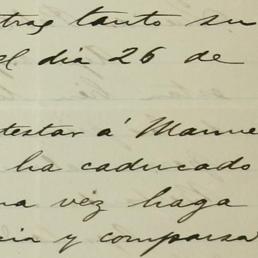 tras tanto su
el dia 26 de
testar á Manue
ha caducado
na vez haga
cia y comparsa